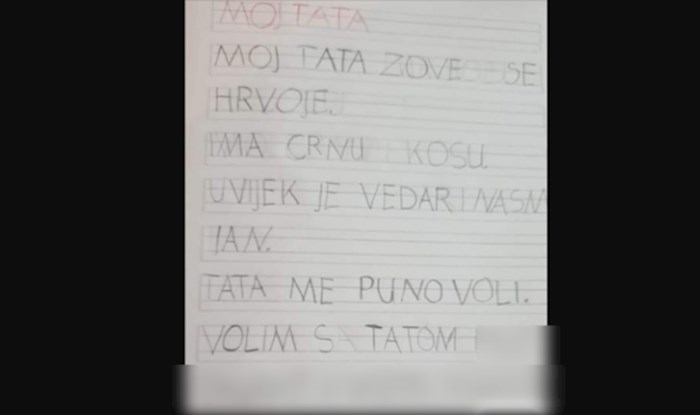 MOJ TATA
MOJ TATA ZOVE SE
HRVOJE.
IMA CRNU KOSU.
UVIJEK JE VEDAR I NASM
IAN.
TATA ME PUNO VOLI.
VOLIM SA TATOM